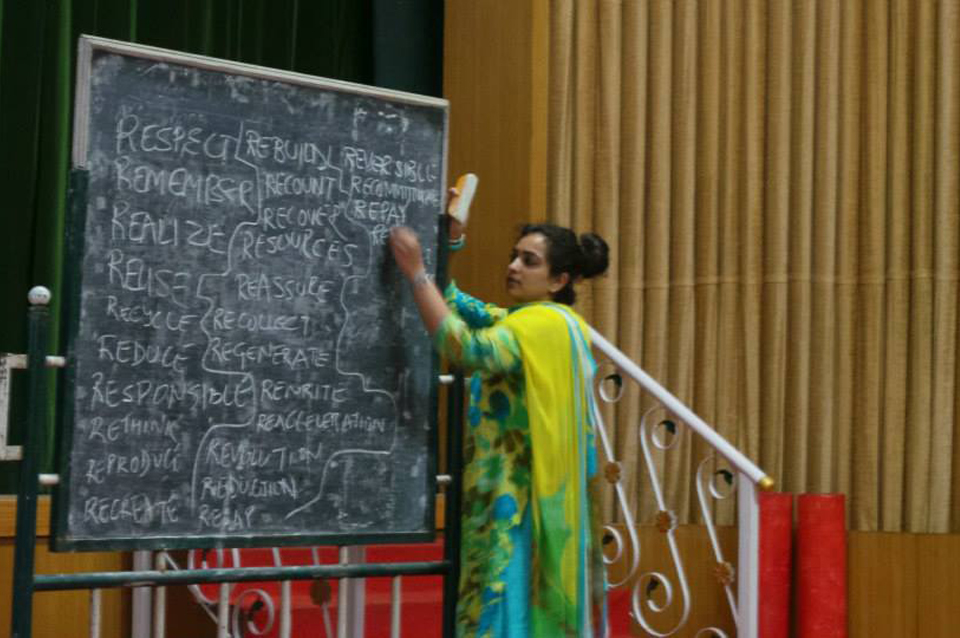 RESPECT
REMEMBER
REALIZE
REUSE
RECYCLE
REDUCE
RESPONSIBLE
RETHINK
REPRODUCE
RECREATE
REBUILD
RECOUNT
RECOVER
RESOURCES
REASSURE
RECOLLECT
REGENERATE
REWRITE
REACCELERATION
REVOLUTION
REDUCTION
REVERSIBLE
REPAY
RE